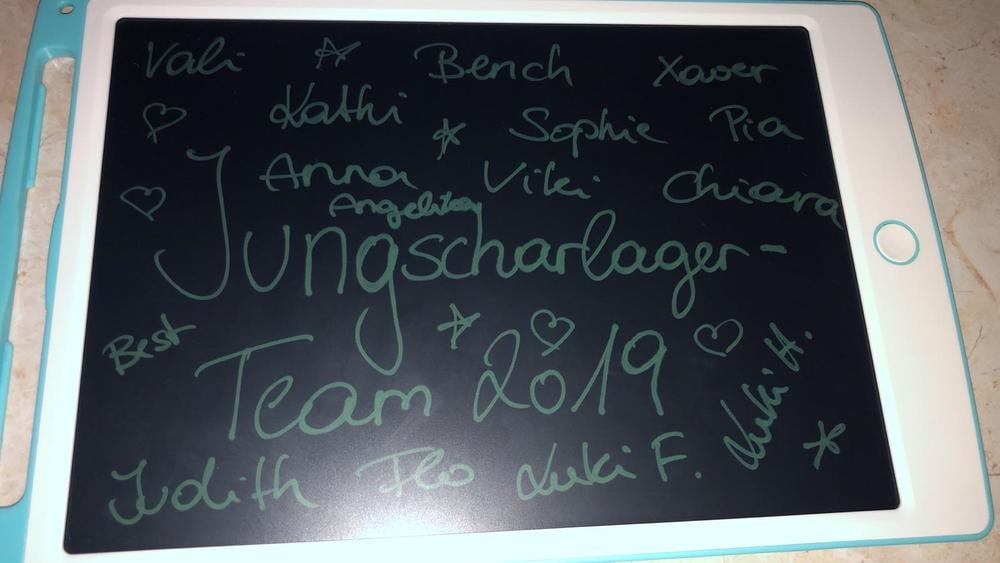 Vali Bench Xaver
Kathi Sophie Pia
Anna Viki Chiara
Angelika
Jungscharlager-
Best
Team 2019
Luki H.
Judith Flo Luki F.